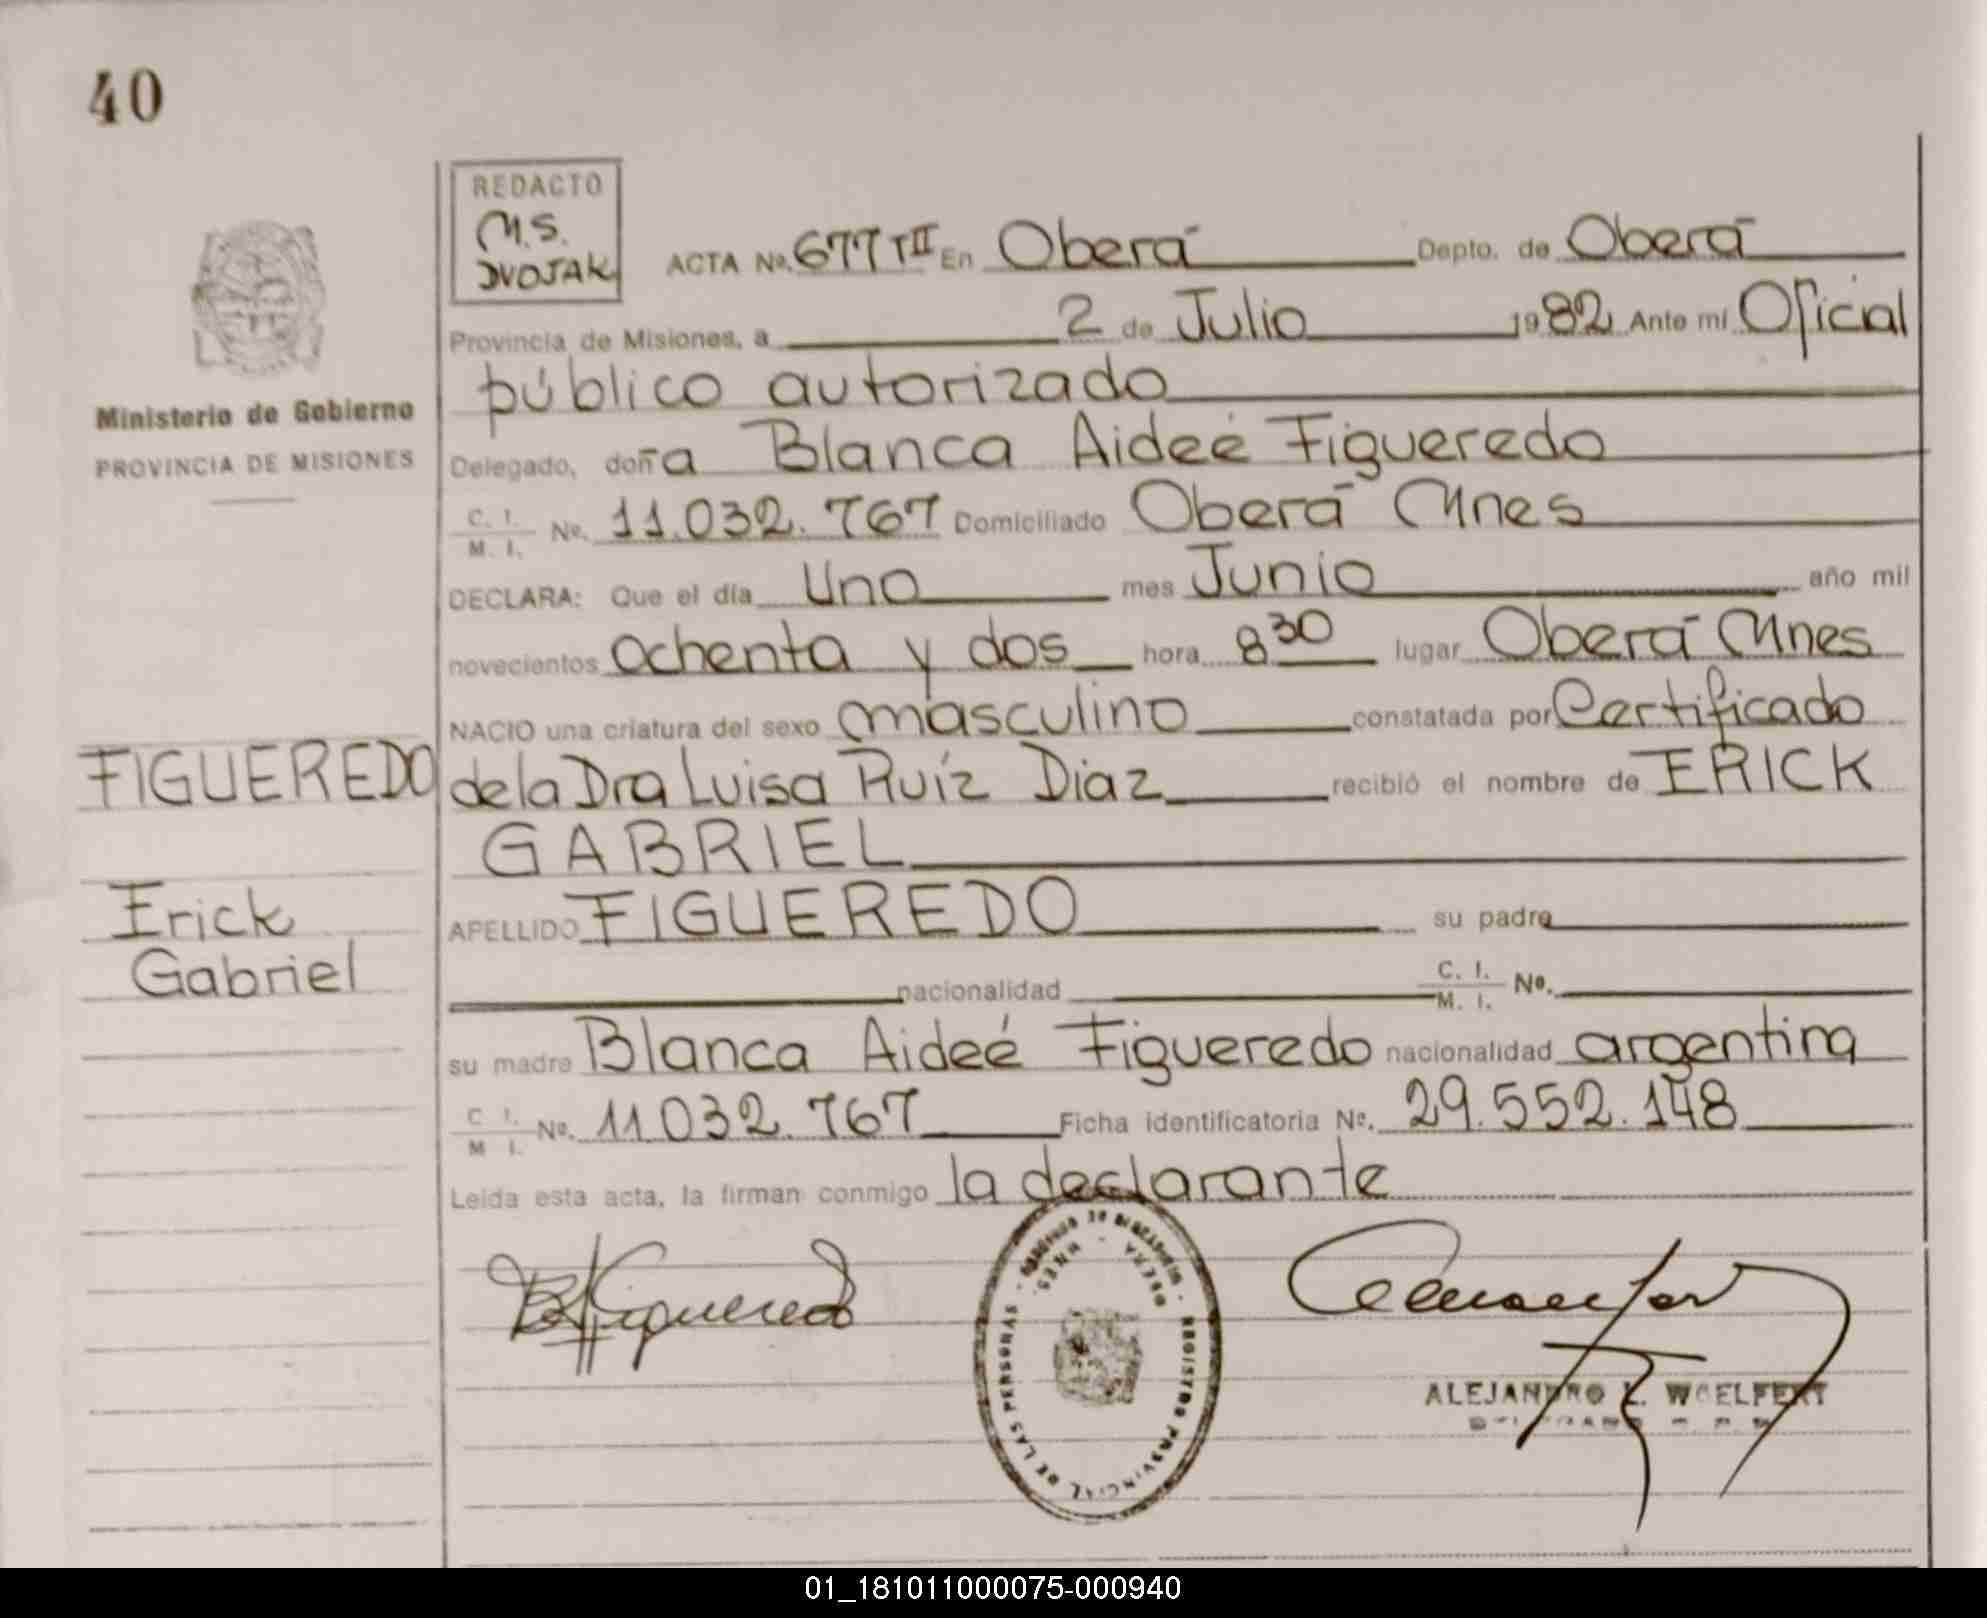 40
REDACTO
M.S.
DVOJAK
ACTA No. 677 TII En Oberá Depto. de Oberá
Provincia de Misiones, a 2 de Julio 1982 Ante mí Oficial
público autorizado
Ministerio de Gobierno
PROVINCIA DE MISIONES
Delegado, doña Blanca Aideé Figueredo
C. I. / M. I. No. 11.032.767 Domiciliado Oberá Mnes
DECLARA: Que el día Uno mes Junio año mil
novecientos ochenta y dos hora 8 30 lugar Oberá Mnes
NACIO una criatura del sexo masculino constatada por Certificado
FIGUEREDO
de la Dra Luisa Ruíz Diaz recibió el nombre de ERICK
GABRIEL
Erick
Gabriel
APELLIDO FIGUEREDO su padre
nacionalidad C. I. / M. I. No.
su madre Blanca Aideé Figueredo nacionalidad argentina
C. I. / M. I. No. 11032.767 Ficha identificatoria No. 29.552.148
Leída esta acta, la firman conmigo la declarante
B A Figueredo
REGISTRO PROVINCIAL DE LAS PERSONAS
OBERA - MNES.
ALEJANDRO L. WOELFERT
01_181011000075-000940